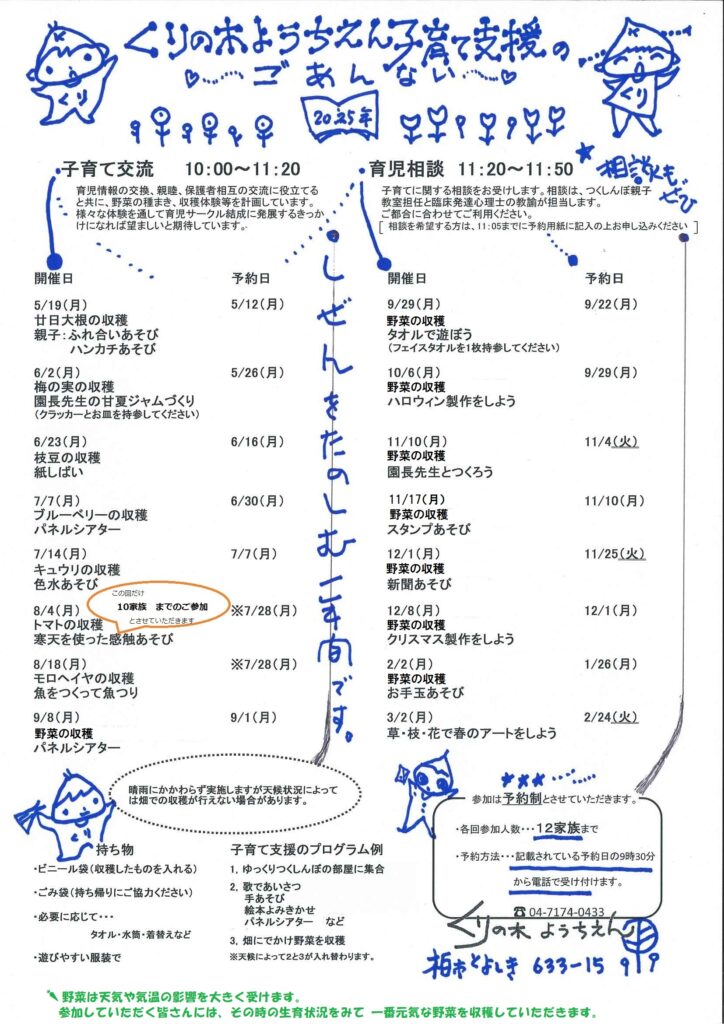 くりの木ようちえん子育て支援の
ごあんない
2025年
くり
くり
子育て交流 10:00～11:20
育児情報の交換、親睦、保護者相互の交流に役立てる
と共に、野菜の種まき、収穫体験等を計画しています。
様々な体験を通して育児サークル結成に発展するきっか
けになれば望ましいと期待しています。
育児相談 11:20～11:50
★相談もぜひ
子育てに関する相談をお受けします。相談は、つくしんぼ親子
教室担任と臨床発達心理士の教諭が担当します。
ご都合に合わせてご利用ください。
[ 相談を希望する方は、11:05までに予約用紙に記入の上お申し込みください ]
開催日 予約日
5/19(月) 5/12(月)
廿日大根の収穫
親子:ふれ合いあそび
ハンカチあそび
6/2(月) 5/26(月)
梅の実の収穫
園長先生の甘夏ジャムづくり
(クラッカーとお皿を持参してください)
6/23(月) 6/16(月)
枝豆の収穫
紙しばい
7/7(月) 6/30(月)
ブルーベリーの収穫
パネルシアター
7/14(月) 7/7(月)
キュウリの収穫
色水あそび
この回だけ
10家族 までのご参加
とさせていただきます
8/4(月) ※7/28(月)
トマトの収穫
寒天を使った感触あそび
8/18(月) ※7/28(月)
モロヘイヤの収穫
魚をつくって魚つり
9/8(月) 9/1(月)
野菜の収穫
パネルシアター
しぜんをたのしむ二時間です。
開催日 予約日
9/29(月) 9/22(月)
野菜の収穫
タオルで遊ぼう
(フェイスタオルを1枚持参してください)
10/6(月) 9/29(月)
野菜の収穫
ハロウィン製作をしよう
11/10(月) 11/4(火)
野菜の収穫
園長先生とつくろう
11/17(月) 11/10(月)
野菜の収穫
スタンプあそび
12/1(月) 11/25(火)
野菜の収穫
新聞あそび
12/8(月) 12/1(月)
野菜の収穫
クリスマス製作をしよう
2/2(月) 1/26(月)
野菜の収穫
お手玉あそび
3/2(月) 2/24(火)
草・枝・花で春のアートをしよう
晴雨にかかわらず実施しますが天候状況によって
は畑での収穫が行えない場合があります。
くり
持ち物
・ビニール袋(収穫したものを入れる)
・ごみ袋(持ち帰りにご協力ください)
・必要に応じて・・・
タオル・水筒・着替えなど
・遊びやすい服装で
子育て支援のプログラム例
1. ゆっくりつくしんぼの部屋に集合
2. 歌であいさつ
手あそび
絵本よみきかせ
パネルシアター など
3. 畑にでかけ野菜を収穫
※天候によって2と3が入れ替わります。
★★★
参加は予約制とさせていただきます。
・各回参加人数・・・12家族まで
・予約方法・・・記載されている予約日の9時30分
から電話で受け付けます。
☎04-7174-0433
くりの木 ようちえん
柏市とよしき 633-15
野菜は天気や気温の影響を大きく受けます。
参加していただく皆さんには、その時の生育状況をみて 一番元気な野菜を収穫していただきます。